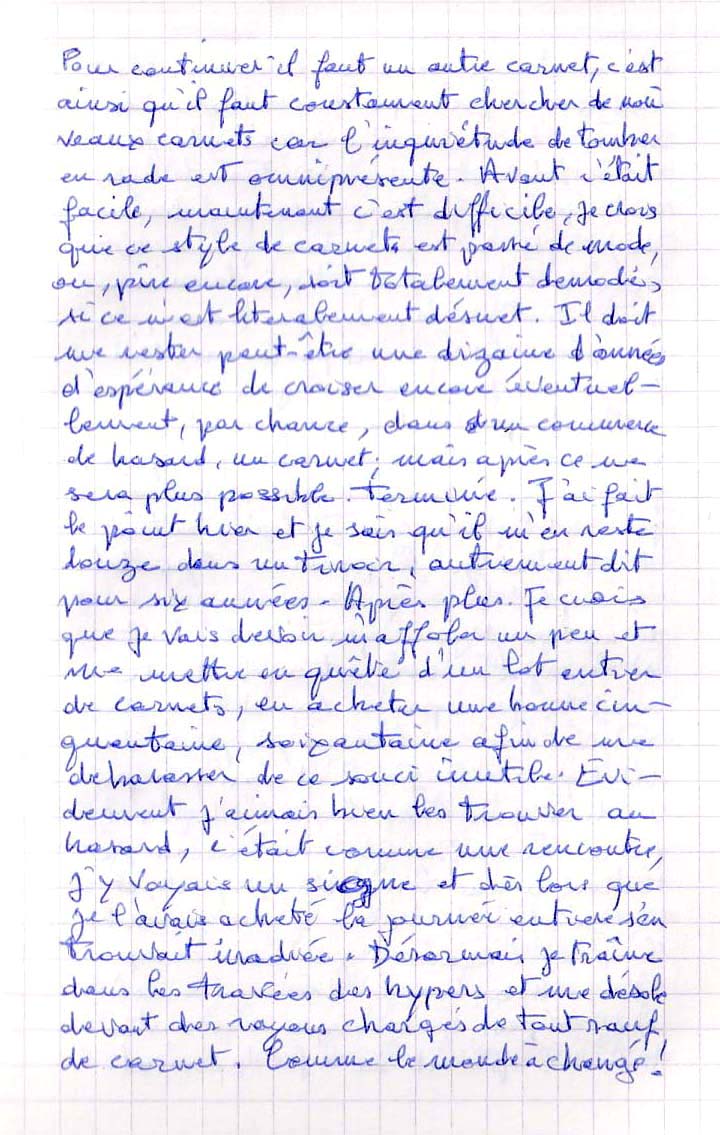 Pour continuer il faut un autre carnet, c'est
ainsi qu'il faut constamment chercher de nou
veaux carnets car l'inquiétude de tomber
en rade est omniprésente. Avant c'était
facile, maintenant c'est difficile, je crois
que ce style de carnets est passé de mode,
ou, pire encore, soit totalement démodé,
si ce n'est littéralement désuet. Il doit
me rester peut-être une dizaine d'années
d'espérance de croiser encore éventuel-
lement, par chance, dans un commerce
de hasard, un carnet, mais après ce ne
sera plus possible. Terminé. J'ai fait
le point hier et je sais qu'il m'en reste
douze dans un tiroir, autrement dit
pour six années. Après plus. Je crois
que je vais devoir m'affoler un peu et
me mettre en quête d'un lot entier
de carnets, en acheter une bonne cin-
quantaine, soixantaine afin de me
débarasser de ce souci inutile. Évi-
demment j'aimais bien les trouver au
hasard, c'était comme une rencontre,
j'y voyais un signe et dès lors que
je l'avais acheté la journée entière s'en
trouvait irradiée. Désormais je traîne
dans les travées des hypers et me désole
devant des rayons chargés de tout sauf
de carnet. Comme le monde à changé !